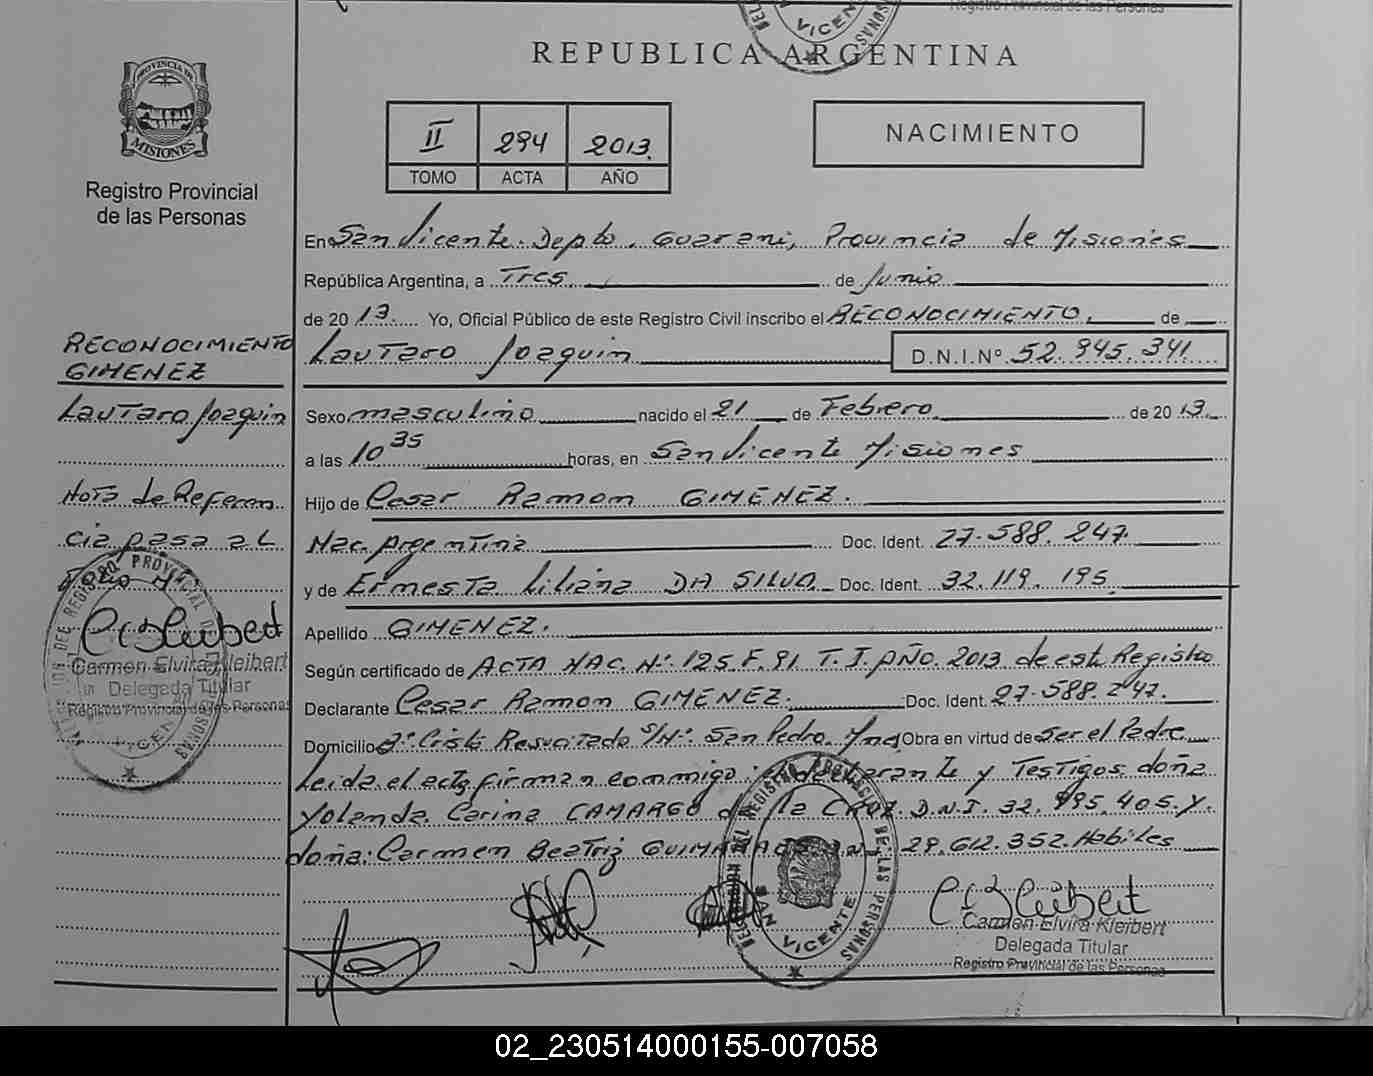 Registro Provincial de las Personas
VICENTE
REPUBLICA ARGENTINA
PROVINCIA DE
MISIONES
Registro Provincial
de las Personas
II 294 2013
TOMO ACTA AÑO
NACIMIENTO
En San Vicente. Depto. Guarani, Provincia de Misiones
República Argentina, a Tres de Junio
de 2013. Yo, Oficial Público de este Registro Civil inscribo el RECONOCIMIENTO. de
Lautaro Joaquin D.N.I.Nº 52.945.341
RECONOCIMIENTO
GIMENEZ
Lautaro Joaquin
Nota de Referen
cia pasa al
Carmen Elvira Kleibert
Delegada Titular
Registro Provincial de las Personas
Sexo masculino nacido el 21 de Febrero de 2013.
a las 10 35 horas, en San Vicente Misiones
Hijo de Cesar Ramon GIMENEZ.
Nac. Argentina Doc. Ident. 27.588.247.
y de Ernesta Liliana DA SILVA. Doc. Ident. 32.119.195
Apellido GIMENEZ.
Según certificado de ACTA NAC. Nº. 125 F. 91 T. I. AÑO. 2013 de este Registro
Declarante Cesar Ramon GIMENEZ. Doc. Ident. 27.588.247.
Domicilio Bº. Cristo Resucitado S/Nº. San Pedro. Mnes Obra en virtud de Ser el Padre
Leida el acta firman conmigo el declarante y Testigos doña
Yolanda Carina CAMARGO de la CRUZ. D.N.I. 32.995.405.y.
doña: Carmen Beatriz D.N.I. 29.612.352. Habiles
DEL REGISTRO PROVINCIAL DE LAS PERSONAS
SAN VICENTE
Carmen Elvira Kleibert
Delegada Titular
Registro Provincial de las Personas
02_230514000155-007058